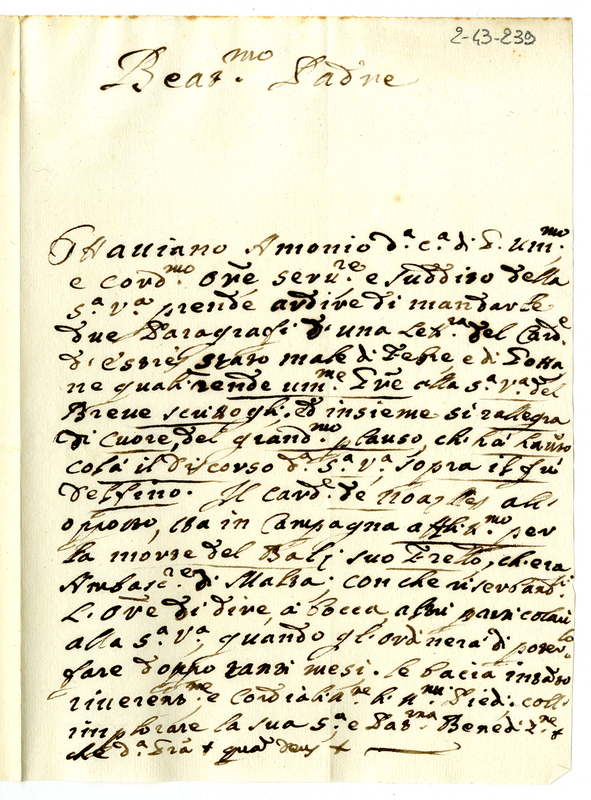 2-43-239
Beat.mo Padre
Antonio d.a c.a di
e cord.mo Ore serv.re e suddito della
S.a V.a prende ardire di mandarle
due Paragrafi d'una Lett.ra del Card.e
stato male di Febre e di Gotta
ne quali rende um.me Gr̃e alla S.a V.a del
Breve scrittogli. Ed insieme si rallegra
di cuore, del grand.mo plauso, ch'hà hauto
colà il discorso d.a S.a V.a, sopra il q̃u
Delfino. Il Card.e de noaglies all'
opposto, sta in Campagna affli.mo per
la morte del Balì suo Frello, ch'era
Ambasc.re di Malta. Con che riserband.
L'Ore di dire a bocca altri particolari
alla S.a V.a, quando gl'ordinerà di poterlo
fare doppo tanti mesi. le bacia intanto
riverent.me e
implorare la sua S.a e Pat.rna Bened.ne
che d.a Grã + quã Deus +